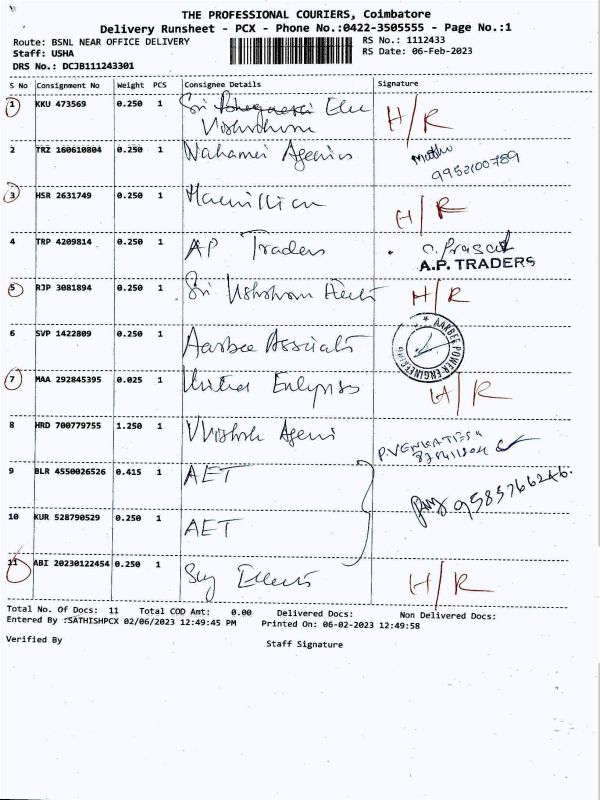 THE PROFESSIONAL COURIERS, Coimbatore
Delivery Runsheet - PCX - Phone No.:0422-3505555 - Page No.:1
Route: BSNL NEAR OFFICE DELIVERY
RS No.: 1112433
Staff: USHA
RS Date: 06-Feb-2023
DRS No.: DCJB111243301
S No Consignment No Weight PCS Consignee Details Signature
1 KKU 473569 0.250 1 Sri Ele H/R
2 TRZ 160610804 0.250 1 Agencies Muthu
9952100789
3 HSR 2631749 0.250 1 Macmillian H/R
4 TRP 4209814 0.250 1 AP Traders C. Prasad
A.P. TRADERS
5 RJP 3081894 0.250 1 Sri H/R
6 SVP 1422809 0.250 1 Aarbee Associats AARBEE POWER ENGINEERING
7 MAA 292845395 0.025 1 H/R
8 HRD 700779755 1.250 1 P.VENKATESH
9 BLR 4550026526 0.415 1 AET
9585766246
10 KUR 528790529 0.250 1 AET
11 ABI 20230122454 0.250 1 H/R
Total No. Of Docs: 11 Total COD Amt: 0.00 Delivered Docs: Non Delivered Docs:
Entered By :SATHISHPCX 02/06/2023 12:49:45 PM Printed On: 06-02-2023 12:49:58
Verified By Staff Signature